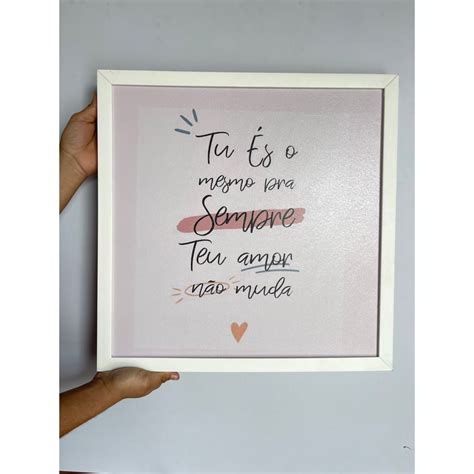 Tu És o
mesmo pra
Sempre
Teu amor
não muda